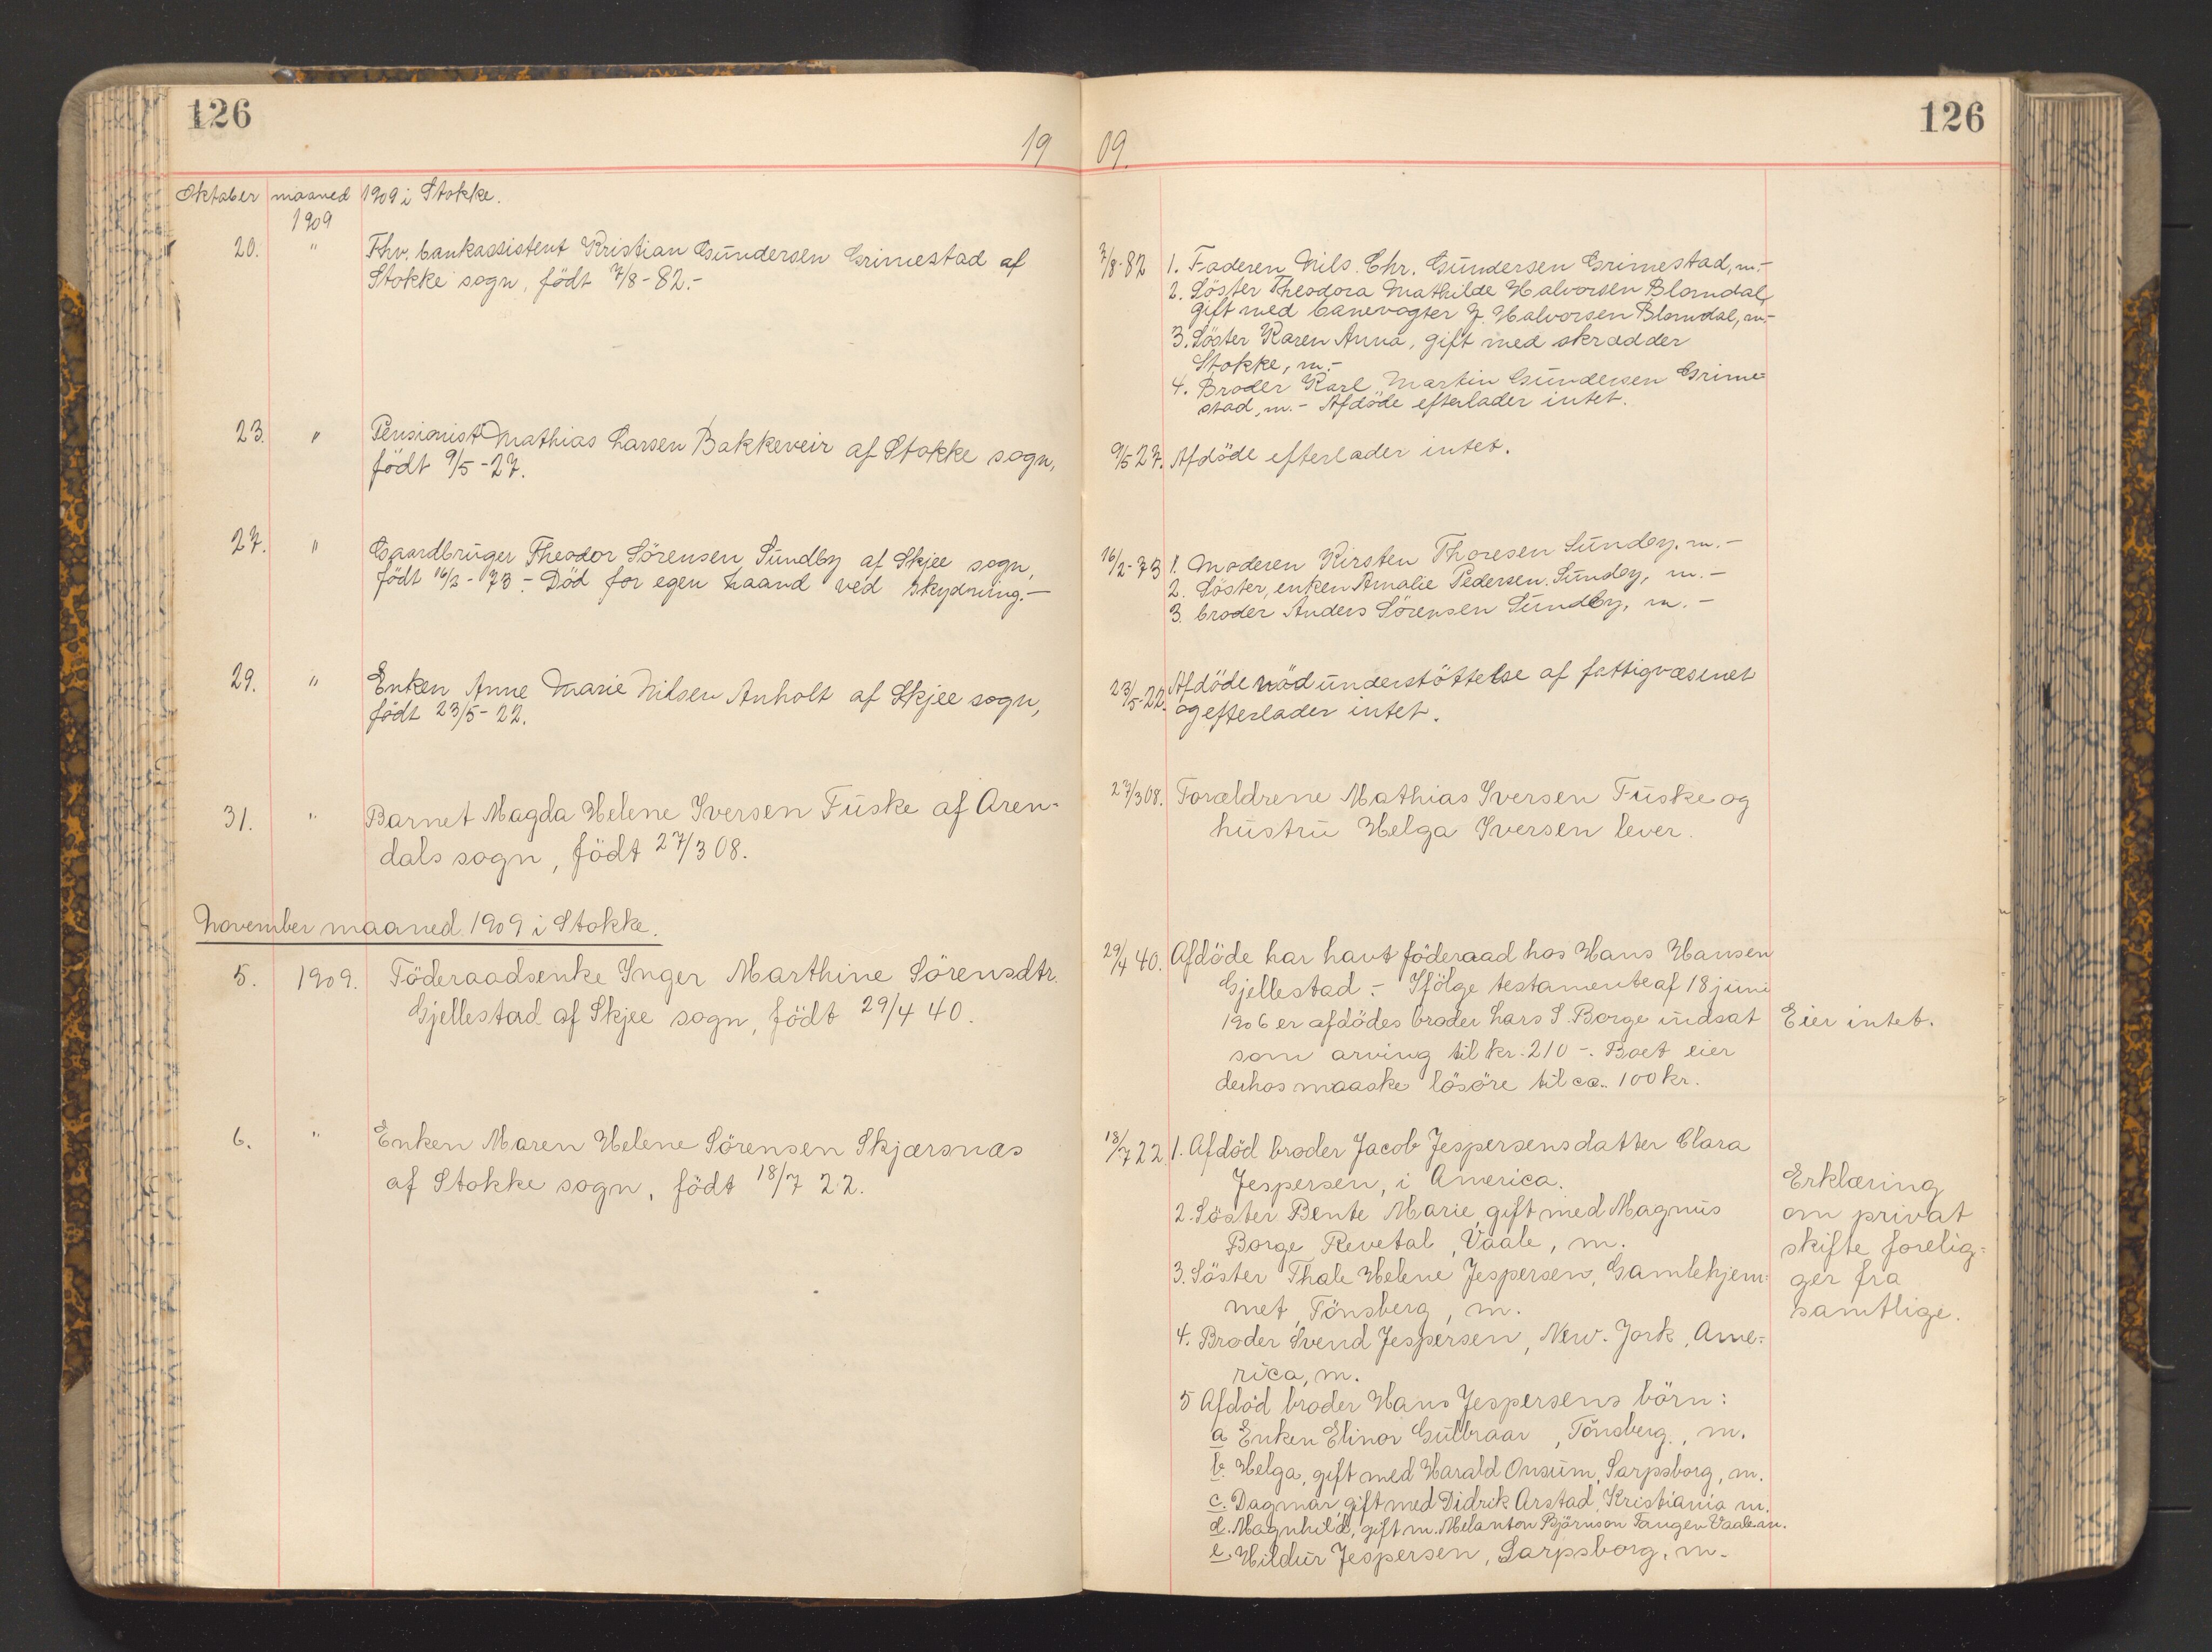 126
126
19 09.
Oktober maaned 1909 i Stokke.
1909
20. " Fhv. bankassistent Kristian Gundersen Grimestad af
Stokke sogn, födt 7/8-82.-
7/8-82 1. Faderen Nils Chr. Gundersen Grimestad, m.-
2. Söster Theodora Mathilde Halvorsen Blomdal,
gift med banevogter J. Halvorsen Blomdal, m.-
3. Söster Karen Anna, gift med skrædder
Stokke, m.-
4. Broder Karl Martin Gundersen Grime=
stad, m.- Afdöde efterlader intet.
23. " Pensionist Mathias Larsen Bakkeveir af Stokke sogn,
födt 9/5-27.
9/5 27. Afdöde efterlader intet.
27. " Gaardbruger Theodor Sörensen Sundby af Skjee sogn,
födt 16/2-73.- Död for egen haand ved skydning.-
16/2-73 1. Moderen Kirsten Thoresen Sundby, m.-
2. Söster, enken Amalie Pedersen Sundby, m.-
3. broder Anders Sörensen Sundby, m.-
29. " Enken Anne Marie Nilsen Anholt af Skjee sogn,
födt 23/5-22.
23/5-22. Afdöde nöd understöttelse af fattigvæsenet
og efterlader intet.
31. " Barnet Magda Helene Iversen Fuske af Aren-
dals sogn, födt 27/3 08.
27/3 08. Forældrene Mathias Iversen Fuske og
hustru Helga Iversen lever.
November maaned 1909 i Stokke.
5. 1909. Föderaadsenke Inger Marthine Sörensdtr.
Gjellestad af Skjee sogn, födt 29/4 40.
29/4 40. Afdöde har havt föderaad hos Hans Hansen
Gjellestad.- Ifölge testamente af 18 juni
1906 er afdödes broder Lars S. Borge indsat
som arving til kr. 210-. Boet eier
derhos maaske lösöre til ca. 100 kr.
Eier intet.
6. " Enken Maren Helene Sörensen Skjærsnæs
af Stokke sogn, födt 18/7 22.
18/7 22. 1. Afdöd broder Jacob Jespersens datter Clara
Jespersen, i America.
2. Söster Bente Marie, gift med Magnus
Borge Revetal, Vaale, m.
3. Söster Thale Helene Jespersen, Gamlehjem=
met, Tönsberg, m.
4. Broder Svend Jespersen, New-York, Ame=
rica, m.
5 Afdöd broder Hans Jespersens börn:
a Enken Elinor Gulbraar, Tönsberg., m.
b. Helga, gift med Harald Onsum, Sarpsborg, m.
c. Dagmar, gift med Didrik Arstad, Kristiania m.
d. Magnhild, gift m. Melanton Björnson Tangen Vaale m.
e. Hildur Jespersen, Sarpsborg, m.
Erklæring
om privat
skifte forelig=
ger fra
samtlige.